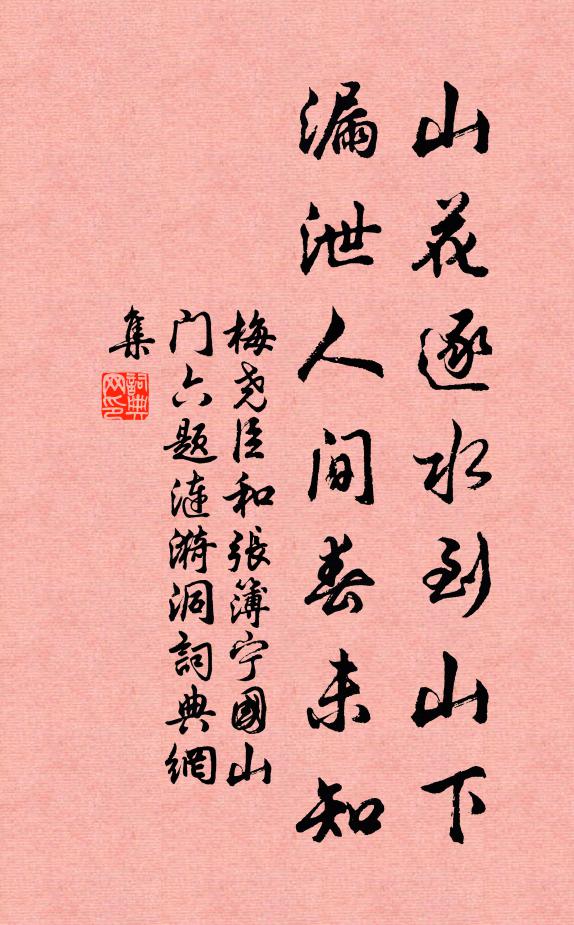 山花逐水到山下
漏泄人间春未知
梅尧臣和張簿宁國山
门六题涟漪洞詞典網
集
詞典
网印